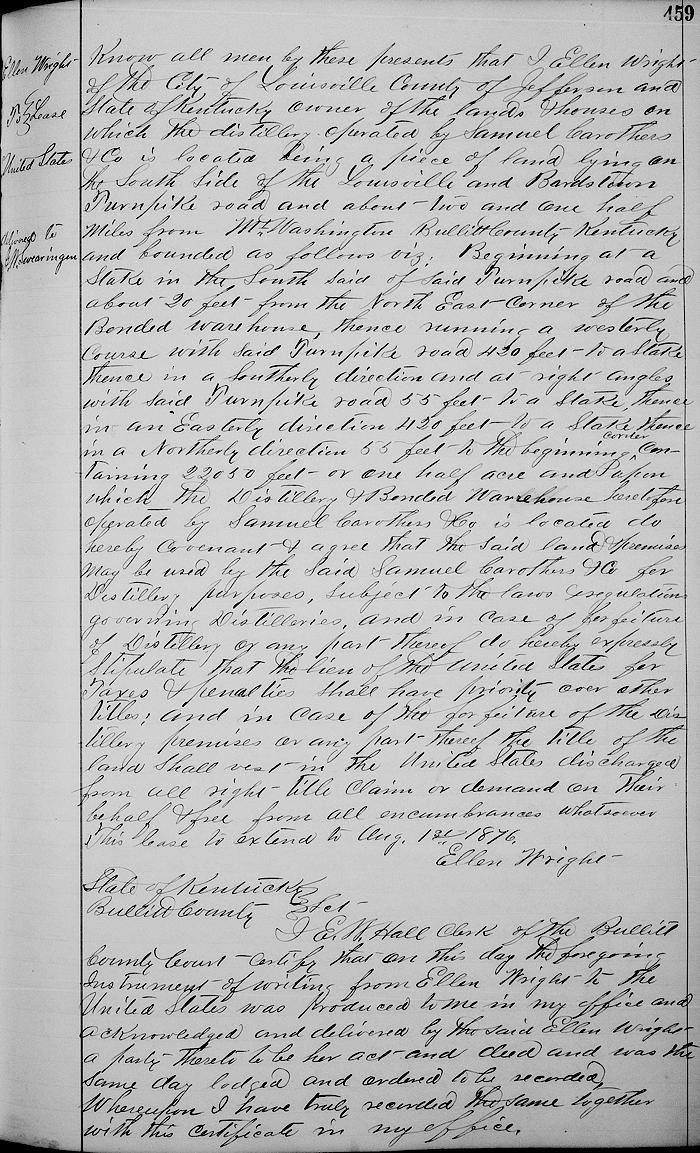 459
Ellen Wright
To } Lease
United States
to
Know all men by these presents that I Ellen Wright
of the City of Louisville County of Jefferson and
State of Kentucky owner of the lands & houses on
which the distillery operated by Samuel Carothers
& Co is located being a piece of land lying on
the South Side of the Louisville and Bardstown
Turnpike road and about two and one half
Miles from Mt Washington Bullitt County Kentucky
and bounded as follows viz: Beginning at a
Stake in the South said of said Turnpike road and
about 20 feet from the North East Corner of the
Bonded warehouse, thence running a westerly
Course with said Turnpike road 420 feet to a Stake
thence in a Southerly direction and at right angles
with said Turnpike road 55 feet to a Stake, thence
in an Easterly direction 420 feet to a Stake thence
in a Northerly direction 55 feet to the beginning corner, Con-
taining 22050 feet or one half acre and upon
which the Distillery & Bonded Warehouse heretofore
operated by Samuel Carothers & Co is located do
hereby Covenant & agree that the said land & premises
may be used by the said Samuel Carothers & Co for
Distillery purposes, subject to the laws & regulations
governing Distilleries, and in case of forfeiture
of Distillery or any part thereof do hereby expressly
Stipulate that the lien of the United States for
Taxes & penalties shall have priority over other
titles; and in case of the forfeiture of the Dis-
tillery premises or any part thereof the title of the
land shall vest in the United States discharged
from all right title Claim or demand on their
behalf & free from all encumbrances whatsoever
This lease to extend to Aug. 1st 1876.
Ellen Wright
State of Kentucky }
Bullitt County } Sct
I E. W. Hall Clerk of the Bullitt
County Court certify that on this day the foregoing
Instrument of writing from Ellen Wright to the
United States was produced to me in my office and
acknowledged and delivered by the said Ellen Wright
a party thereto to be her act and deed and was the
same day lodged and ordered to be recorded,
Whereupon I have truly recorded the same together
with this certificate in my office.